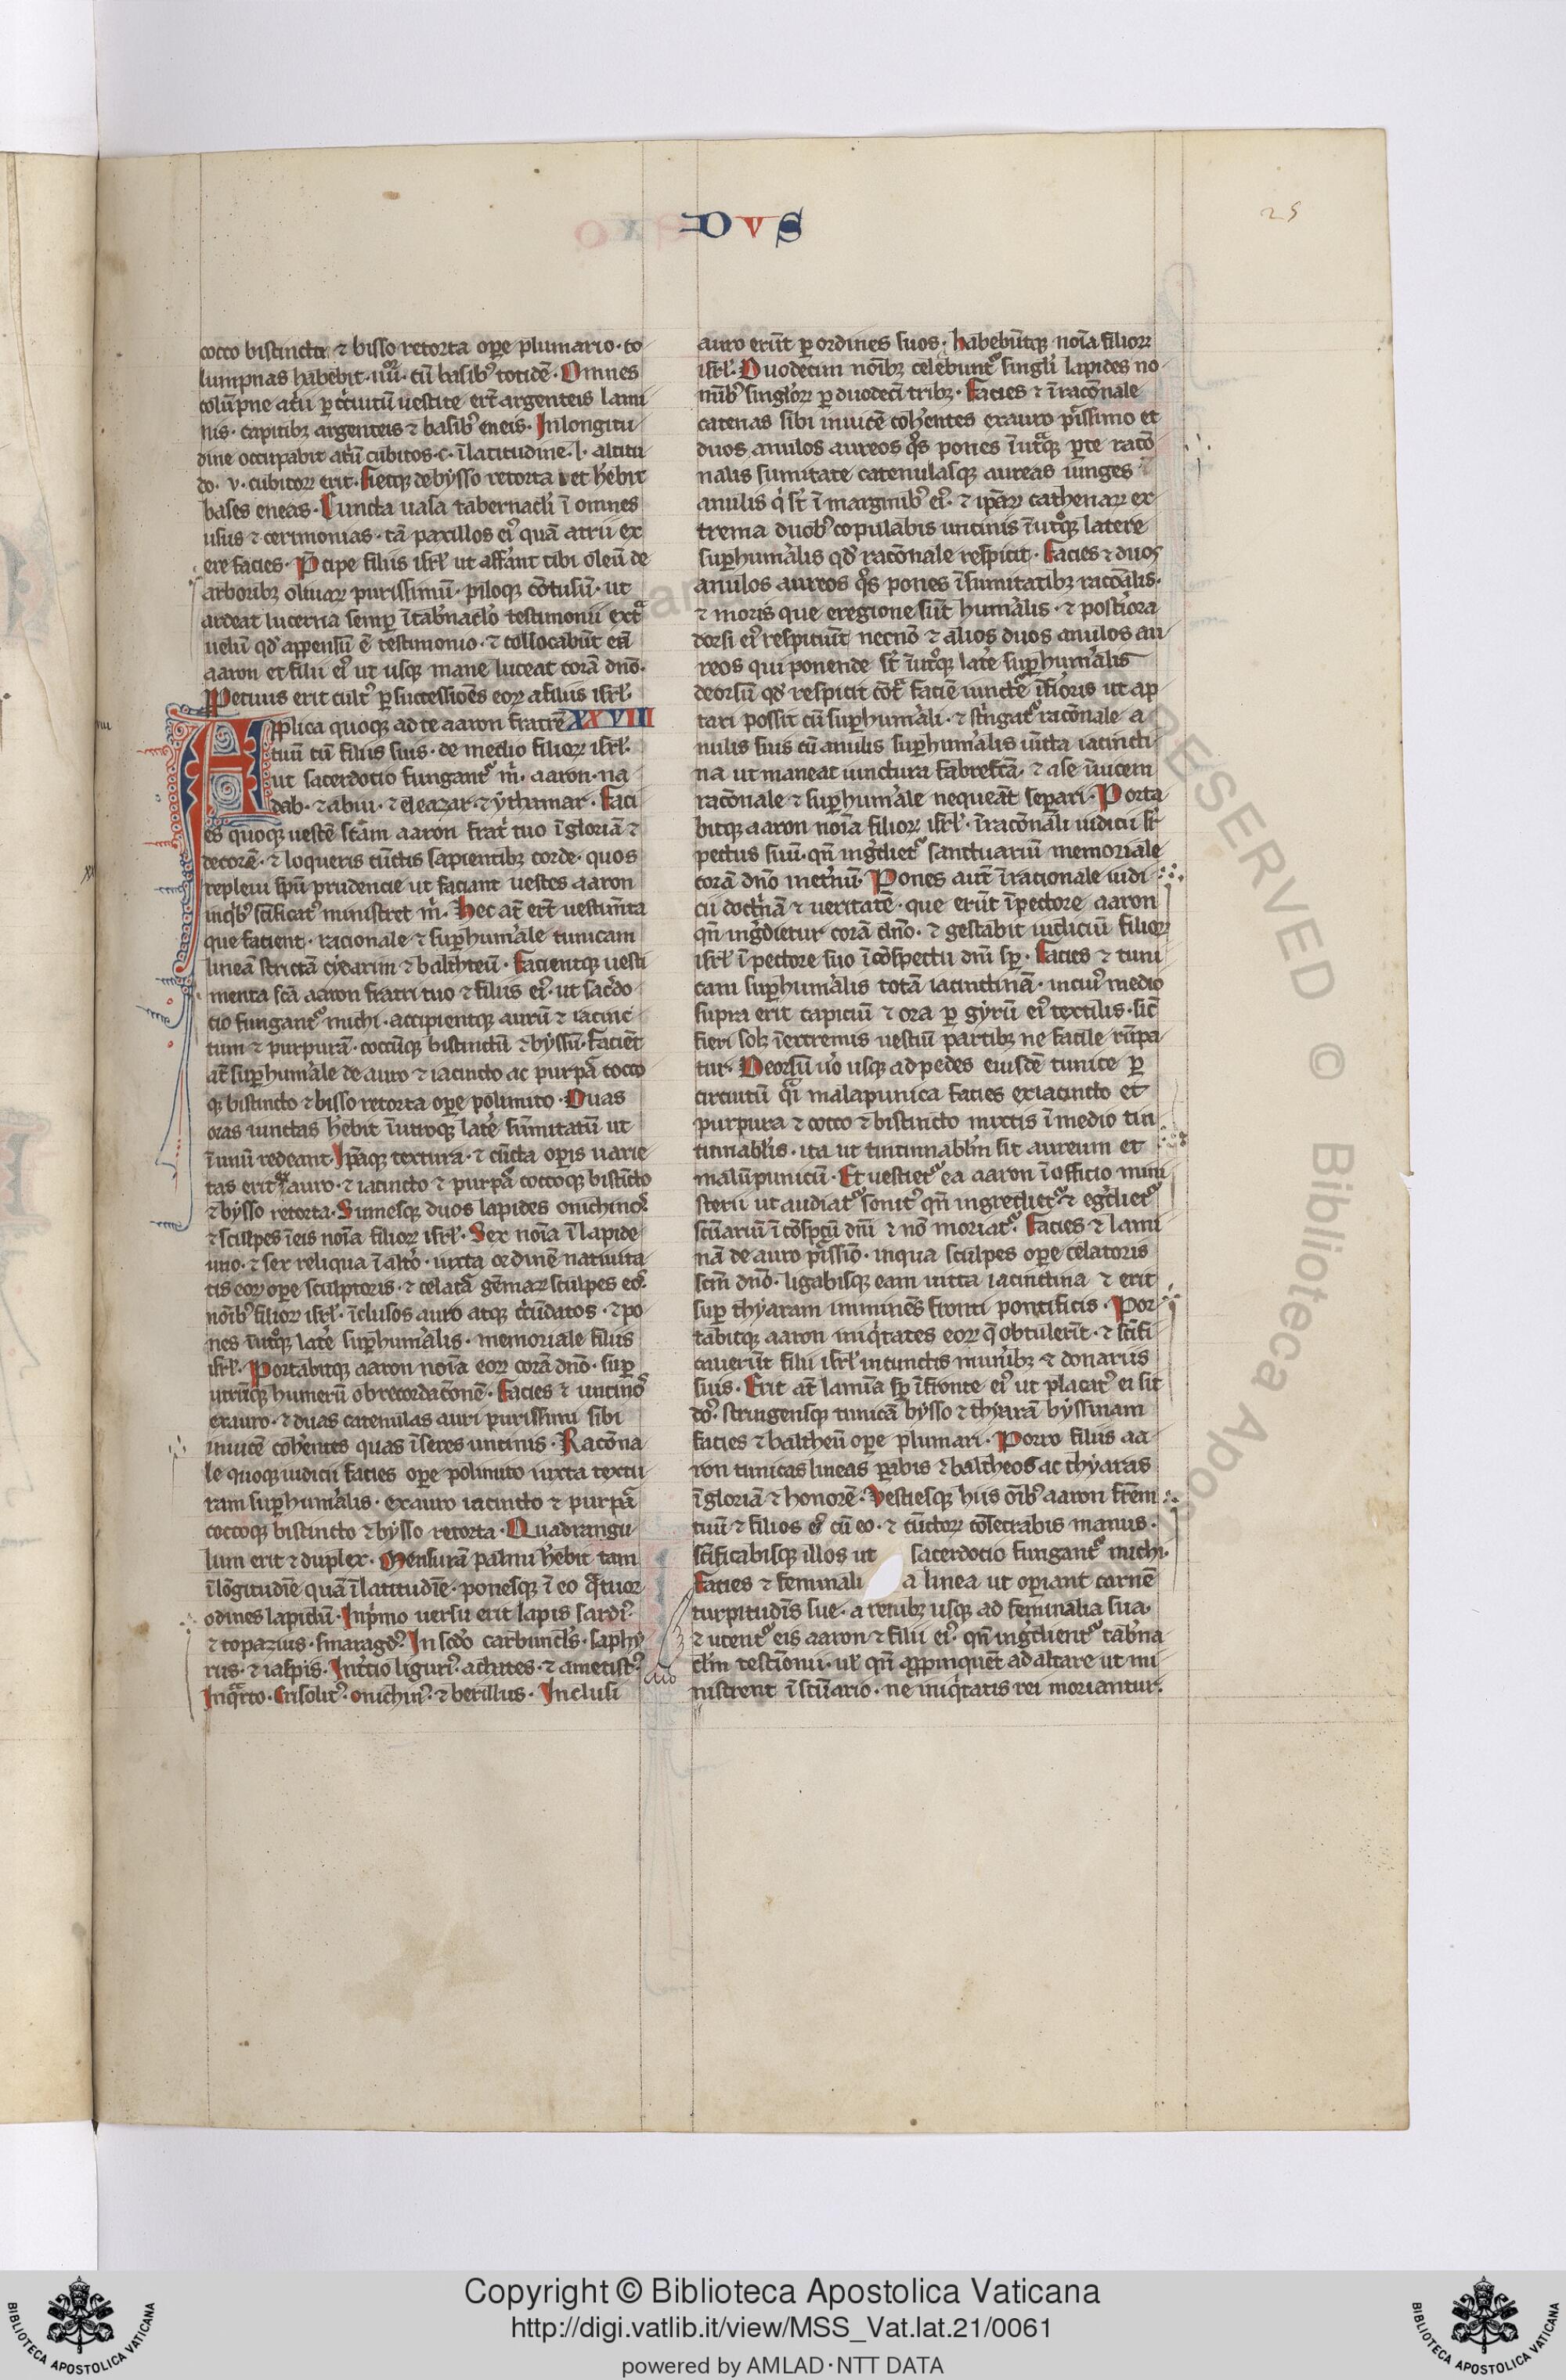 DVS
25
cocco bistincta ⁊ bisso retorta oꝑe plumario · co
lumpnas habebit · iiiiᵒʳ · cū basibꝰ totidē · Omnes
colūpne atͥi ꝑ cͥcuitū uestite erūt argenteis lami
nis · capitibꝫ argenteis ⁊ basibꝰ eneis · In longitu
dine occupabit atͥū cubitos · c · ī latitudine · l · altitu
do · v · cubitoꝝ erit · Fietqꝫ de bysso retorta et hēbit
bases eneas · Cuncta uasa tabernacl̄i ī omnes
usus ⁊ cerimonias · tā paxillos eiꝰ quā atrii ex
ere facies · P̄cipe filiis isrl̄ ut afferant tibi oleū de
arboribꝫ oliuaꝝ purissimū · piloqꝫ cōtusū · ut
ardeat lucerna semꝑ ī tab̄nacl̄o testimonii extᵃ
uelū qd̄ appensū ē testimonio · ⁊ collocabūt eā
aaron et filii eiꝰ ut usqꝫ mane luceat corā dnō ·
Ppetuus erit cultꝰ ꝑ successiōes eoꝝ a filiis isrl̄ ·
Applica quoqꝫ ad te aaron fratrē XXVIII
tuū cū filiis suis · de medio filioꝝ isrl̄ ·
ut sacerdocio fungantᵘʳ m̄ · aaron · na
dab · ⁊ abiu · ⁊ eleazar · ⁊ ythamar · Faci
es quoqꝫ uestē scām aaron frat̄ tuo ī gloriā ⁊
decorē · ⁊ loqueris cūctis sapientibꝫ corde · quos
repleui sp̄u prudencie ut faciant uestes aaron
in qͥbꝰ sc̄ificatꝰ ministret m̄ · Hec aūt erūt uestim̄ta
que facient · racionale ⁊ suꝑhum̄ale tunicam
lineā strictā cydarim ⁊ balthteū · Facientqꝫ uesti
menta scā aaron fratri tuo ⁊ filiis eiꝰ · ut sac̄do
cio fungantᵘʳ michi · accipientqꝫ aurū ⁊ iacinc
tum ⁊ purpurā · coccūqꝫ bistinctū ⁊ byssū · Faciēt
aūt suꝑhum̄ale de auro ⁊ iacincto ac purpᵃ cocco
qꝫ bistincto ⁊ bisso retorta oꝑe polimito · Duas
oras iunctas hēbit ī utroqꝫ lat̄e sūmitatū ut
ī unū redeant · Ip̄aqꝫ textura · ⁊ cūcta oꝑis uarie
tas erit ex auro · ⁊ iacincto ⁊ purpᵃ coccoqꝫ bistīcto
⁊ bysso retorta · Sumesqꝫ duos lapides onichinoꝰ ·
⁊ sculpes ī eis noīa filioꝝ isrl̄ · Sex noīa ī lapide
uno · ⁊ sex reliqua ī alt̄o · iuxta ordinē natiuita
tis eoꝝ oꝑe sculptoris · ⁊ celatᵃ gēmaꝝ sculpes eoꝰ ·
noībꝰ filioꝝ isrl̄ · īclusos auro atqꝫ cͥcūdatos · ⁊ po
nes ī utᵒqꝫ lat̄e suꝑhum̄alis · memoriale filiis
isrl̄ · Portabitqꝫ aaron noīa eoꝝ corā dnō · suꝑ
utrūqꝫ humerū ob recordacōnē · Facies ⁊ uncinoꝰ
ex auro · ⁊ duas catenulas auri purissimi sibi
inuicē coh̄entes quas īseres uncinis · Racōna
le quoqꝫ iudicii facies oꝑe polimito iuxta textu
ram suꝑhum̄alis · ex auro iacincto ⁊ purpᵃ
coccoqꝫ bistincto ⁊ bysso retorta · Quadrangu
lum erit ⁊ duplex · Mensurā palmi h̄ebit tam
ī lōgitudīe quā ī latitudīe · ponesqꝫ ī eo qᵃtuor
odines lapidū · In pͥmo uersu erit lapis sardiꝰ ·
⁊ topazius · smaragdꝰ · In scd̄o carbuncl̄s · saphy
rus · ⁊ iaspis · In t̄cio liguriꝰ · achates · ⁊ ametistꝰ ·
In qᵃrto · Crisolitꝰ · onichinꝰ · ⁊ berillus · Inclusi
auro erūt ꝑ ordines suos · habebūtqꝫ noīa filioꝝ
isrl̄ · Duodecim noībꝫ celebuntᵘʳ singl̄i lapides no
mībꝰ singl̄oꝝ ꝑ duodecī tribꝫ · Facies ⁊ ī racōnale
catenas sibi inuicē coh̄entes ex auro pͥssimo et
duos anulos aureos qᵒs pones ī utᵃqꝫ ꝑte racō
nalis sumitate catenulasqꝫ aureas iunges
anulis qͥ sūt ī marginibꝰ eiꝰ · ⁊ ip̄aꝝ cathenaꝝ ex
trema duobꝰ copulabis uncinis ī utᵒqꝫ latere
suꝑhum̄alis qd̄ racōnale respicit · Facies ⁊ duos
anulos aureos qᵒs pones ī sumitatibꝫ racōalis ·
⁊ in oris que eregione sūt hum̄alis · ⁊ post̄iora
dorsi eiꝰ respiciūt necnō ⁊ alios duos anulos au
reos qui ponende sūt ī utᵒqꝫ lat̄e suꝑhum̄alis
deorsū qd̄ respicit cōtᵃ faciē iunct̄e īf̄ioris ut ap
tari possit cū suꝑhum̄ali · ⁊ stͥngatᵘʳ racōnale a
nulis suis cū anulis suꝑhum̄alis uitta iacincti
na ut maneat iunctura fabrefcā · ⁊ a se īuicem
racōnale ⁊ suꝑhum̄ale nequeāt seꝑari · Porta
bitqꝫ aaron noīa filioꝝ isrl̄ · ī racōnali iudicii suꝑ
pectus suū · qn̄ ingͤdietᵘʳ sanctuariū memoriale
corā dnō met̄nū · Pones aut̄ ī racionale iudi
cii doctͥnā ⁊ ueritatē · que erūt ī pectore aaron
qn̄ ingͤdietur corā dnō · ⁊ gestabit iudiciū filioꝝ
isrl̄ ī pectore suo ī cōspectu dnī sꝑ · Facies ⁊ tuni
cam suꝑhum̄alis totā iacinctinā · in cuiꝰ medio
supra erit capiciū ⁊ ora ꝑ gyrū eiꝰ textilis · sic̄
fieri solꝫ ī extremis uestiū partibꝫ ne facile rūpa
tur · Deorsū uͦo usqꝫ ad pedes eiusdē tunice ꝑ
circuitū qᵃi mala punica facies ex iacincto et
purpura ⁊ cocco ⁊ bistincto mixtis ī medio tin
tinnabl̄is · ita ut tintinnabl̄m sit aureum et
malū punicū · Et uestietᵘʳ ea aaron ī officio mini
sterii ut audiatᵘʳ sonitꝰ qn̄ ingredietᵘʳ ⁊ egͤdietᵘʳ
scūariū ī cōspcū dnī ⁊ nō moriatᵘʳ · Facies ⁊ lami
nā de auro pͥssiō · in qua sculpes oꝑe celatoris
scm̄ dnō · ligabisqꝫ eam uitta iacinctina ⁊ erit
suꝑ thyaram imminēs fronti pontificis · Por
tabitqꝫ aaron iniqͥtates eoꝝ q̄ obtulerūt · ⁊ sc̄ifi
cauerūt filii isrl̄ in cunctis mun̄ibꝫ ⁊ donariis
suis · Erit aūt lamīa sꝑ ī fronte eiꝰ ut placatꝰ ei sit
dō · stringensqꝫ tunicā bysso ⁊ thyarā byssinam
facies ⁊ baltheū oꝑe plumari · Porro filiis aa
ron tunicas lineas ꝑabis ⁊ baltheos ac thyaras
ī gloriā ⁊ honorē · Vestiesqꝫ hiis oībꝰ aaron frēm
tuū ⁊ filios eiꝰ cū eo · ⁊ cūctoꝝ cōsecrabis manus ·
sc̄ificabisqꝫ illos ut sacerdocio fungantᵘʳ michi ·
Facies ⁊ feminali a linea ut oꝑiant carnē
turpitudīs sue · a renibꝫ usqꝫ ad feminalia sua ·
⁊ utentᵘʳ eis aaron ⁊ filii eiꝰ · qn̄ ingͤdientᵘʳ tab̄na
cl̄m testīonii · ul̄ qn̄ aꝓpinquēt ad altare ut mi
nistrent ī scūario · ne iniqͥtatis rei moriantur ·
Copyright © Biblioteca Apostolica Vaticana
http://digi.vatlib.it/view/MSS_Vat.lat.21/0061
powered by AMLAD·NTT DATA
BIBLIOTECA APOSTOLICA VATICANA
BIBLIOTECA APOSTOLICA VATICANA